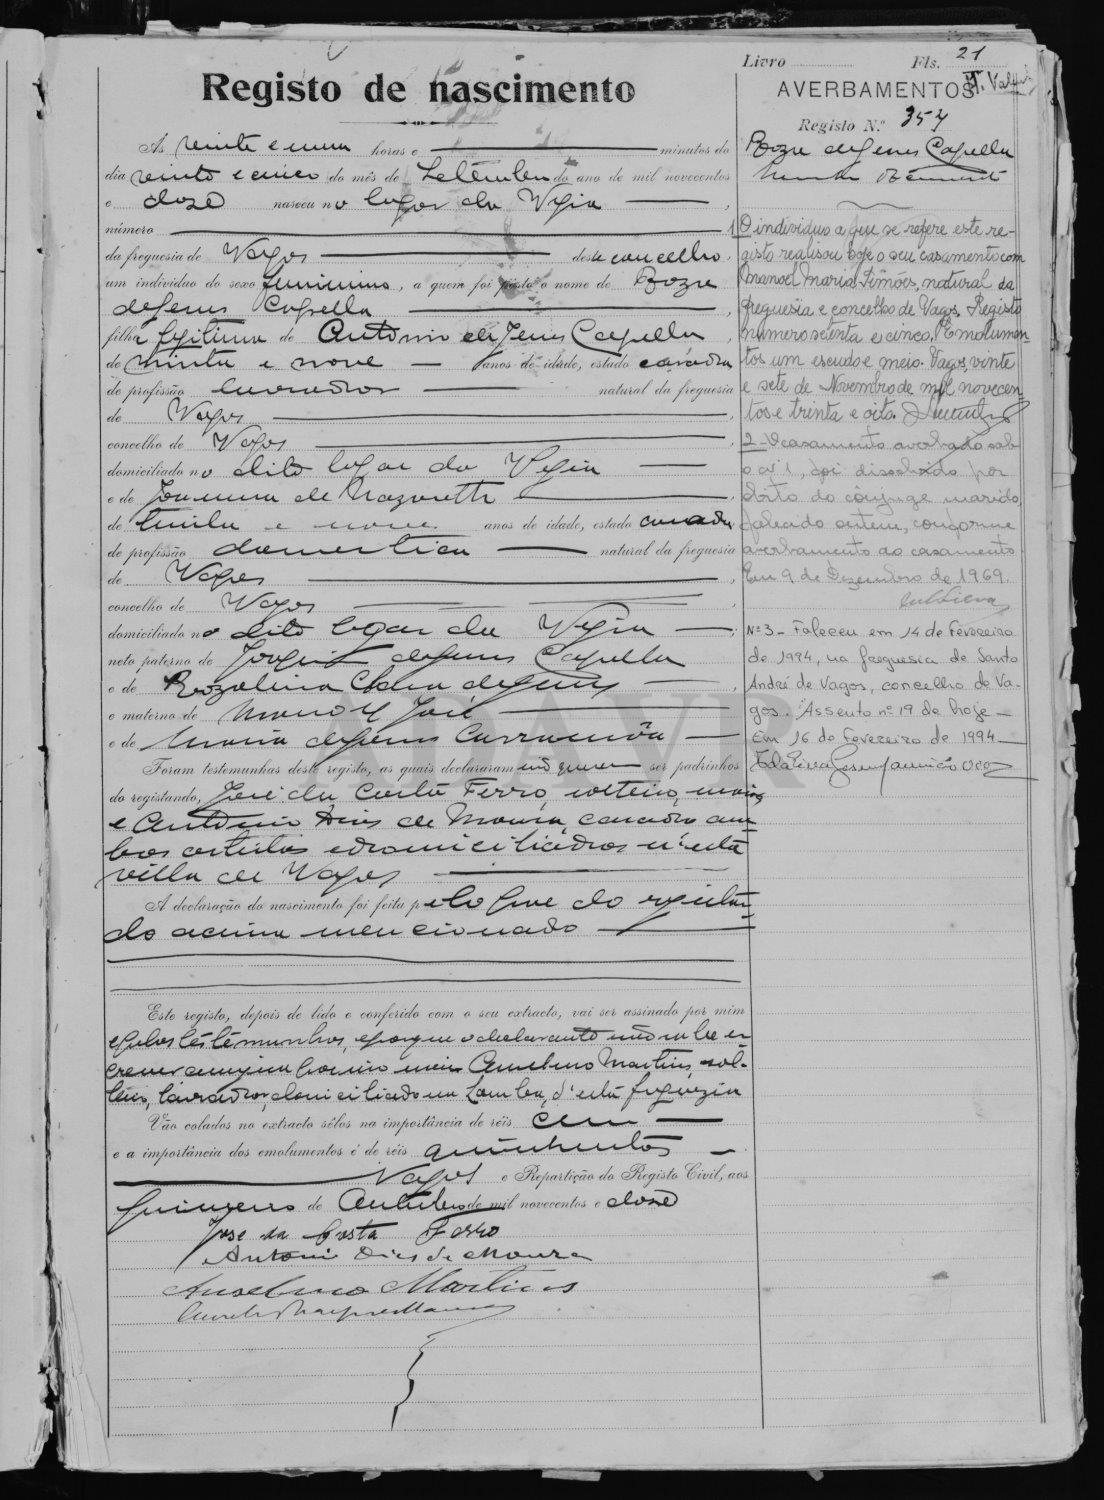 Livro Fls. 21
Registo de nascimento
AVERBAMENTOS
Registo N.º 357
Às vinte e uma horas e minutos do
dia vinte e cinco do mês de Setembro do ano de mil novecentos
e doze nasceu no logar da Vigia
número
da freguesia de Vagos deste concelho,
um indivíduo do sexo feminino, a quem foi pôsto o nome de Roza
de Jesus Capella
filha legitima de Antonio de Jesus Capella,
de trinta e nove anos de idade, estado casado,
de profissão lavrador natural da freguesia
de Vagos
concelho de Vagos
domiciliado no dito logar da Vigia
e de Joanna de Nazareth
de trinta e nove anos de idade, estado casada
de profissão domestica natural da freguesia
de Vagos
concelho de Vagos
domiciliado no dito logar da Vigia
neto paterno de Joaquim de Jesus Capella
e de Rozalina Clara de Jesus
e materno de Manoel José
e de Maria de Jesus
Foram testemunhas deste registo, as quais declararam não querer ser padrinhos
do registando, José da Costa Ferro, solteiro, maior
e Antonio Dias de Moura, casado, am
bos artistas e domiciliados n'esta
villa de Vagos
A declaração do nascimento foi feita pelo pae do registan
do acima mencionado
Este registo, depois de lido e conferido com o seu extracto, vai ser assinado por mim
e pelas testemunhas, e porque o declarante não sabe es
crever assigna Anselmo Martins, sol-
teiro, lavrador, domiciliado na Lomba, d'esta freguezia
Vão colados no extracto sêlos na importância de réis cem
e a importância dos emolumentos é de réis quinhentos
Vagos e Repartição do Registo Civil, aos
primeiro de Outubro de mil novecentos e doze
José da Costa Ferro
Antonio Dias de Moura
Anselmo Martins
Roza de Jesus Capella
1 O individuo a que se refere este re-
gisto realisou hoje o seu casamento com
Manoel Maria Simões, natural da
freguesia e concelho de Vagos. Registo
numero setenta e cinco. Emolumen-
tos um escudo e meio. Vagos, vinte
e sete de Novembro de mil novecen-
tos e trinta e oito.
2-O casamento averbado sob
o nº 1, foi dissolvido por
óbito do cônjuge marido,
falecido ontem, conforme
averbamento ao casamento
Em 9 de Dezembro de 1969.
Nº 3 - Faleceu em 14 de Fevereiro
de 1994, na freguesia de Santo
André de Vagos, concelho de Va-
gos. Assento nº 19 de hoje
Em 16 de Fevereiro de 1994